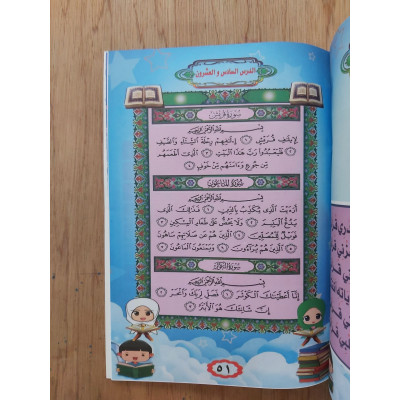 الدرس السادس و العشرون
سورة قريش
بسم الله الرحمن الرحيم
لِإِيلَافِ قُرَيْشٍ ١ إِيلَافِهِمْ رِحْلَةَ الشِّتَاءِ وَالصَّيْفِ
٢ فَلْيَعْبُدُوا رَبَّ هَٰذَا الْبَيْتِ ٣ الَّذِي أَطْعَمَهُم
مِّن جُوعٍ وَآمَنَهُم مِّنْ خَوْفٍ ٤
سورة الماعون
بسم الله الرحمن الرحيم
أَرَأَيْتَ الَّذِي يُكَذِّبُ بِالدِّينِ ١ فَذَٰلِكَ الَّذِي
يَدُعُّ الْيَتِيمَ ٢ وَلَا يَحُضُّ عَلَىٰ طَعَامِ الْمِسْكِينِ ٣
فَوَيْلٌ لِّلْمُصَلِّينَ ٤ الَّذِينَ هُمْ عَن صَلَاتِهِمْ سَاهُونَ
٥ الَّذِينَ هُمْ يُرَاءُونَ ٦ وَيَمْنَعُونَ الْمَاعُونَ ٧
سورة الكوثر
بسم الله الرحمن الرحيم
إِنَّا أَعْطَيْنَاكَ الْكَوْثَرَ ١ فَصَلِّ لِرَبِّكَ وَانْحَرْ ٢
إِنَّ شَانِئَكَ هُوَ الْأَبْتَرُ ٣
٥١